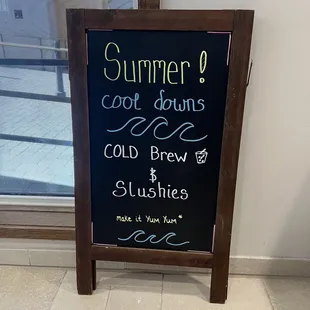 Summer!
cool downs
COLD Brew
$
Slushies
make it Yum Yum*